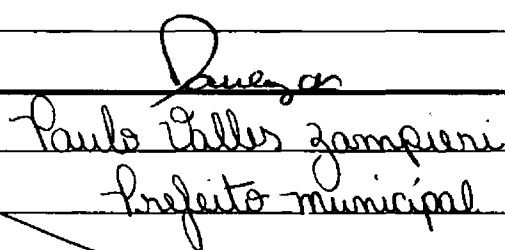 Paulo Valles Zampieri
Prefeito municipal